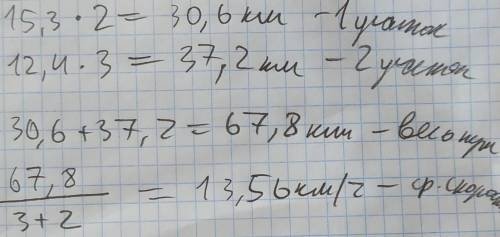 15,3 · 2 = 30,6 км – 1 участок
12,4 · 3 = 37,2 км – 2 участок
30,6 + 37,2 = 67,8 км – весь
67,8 / 3+2 = 13,56 км/ч – ср.